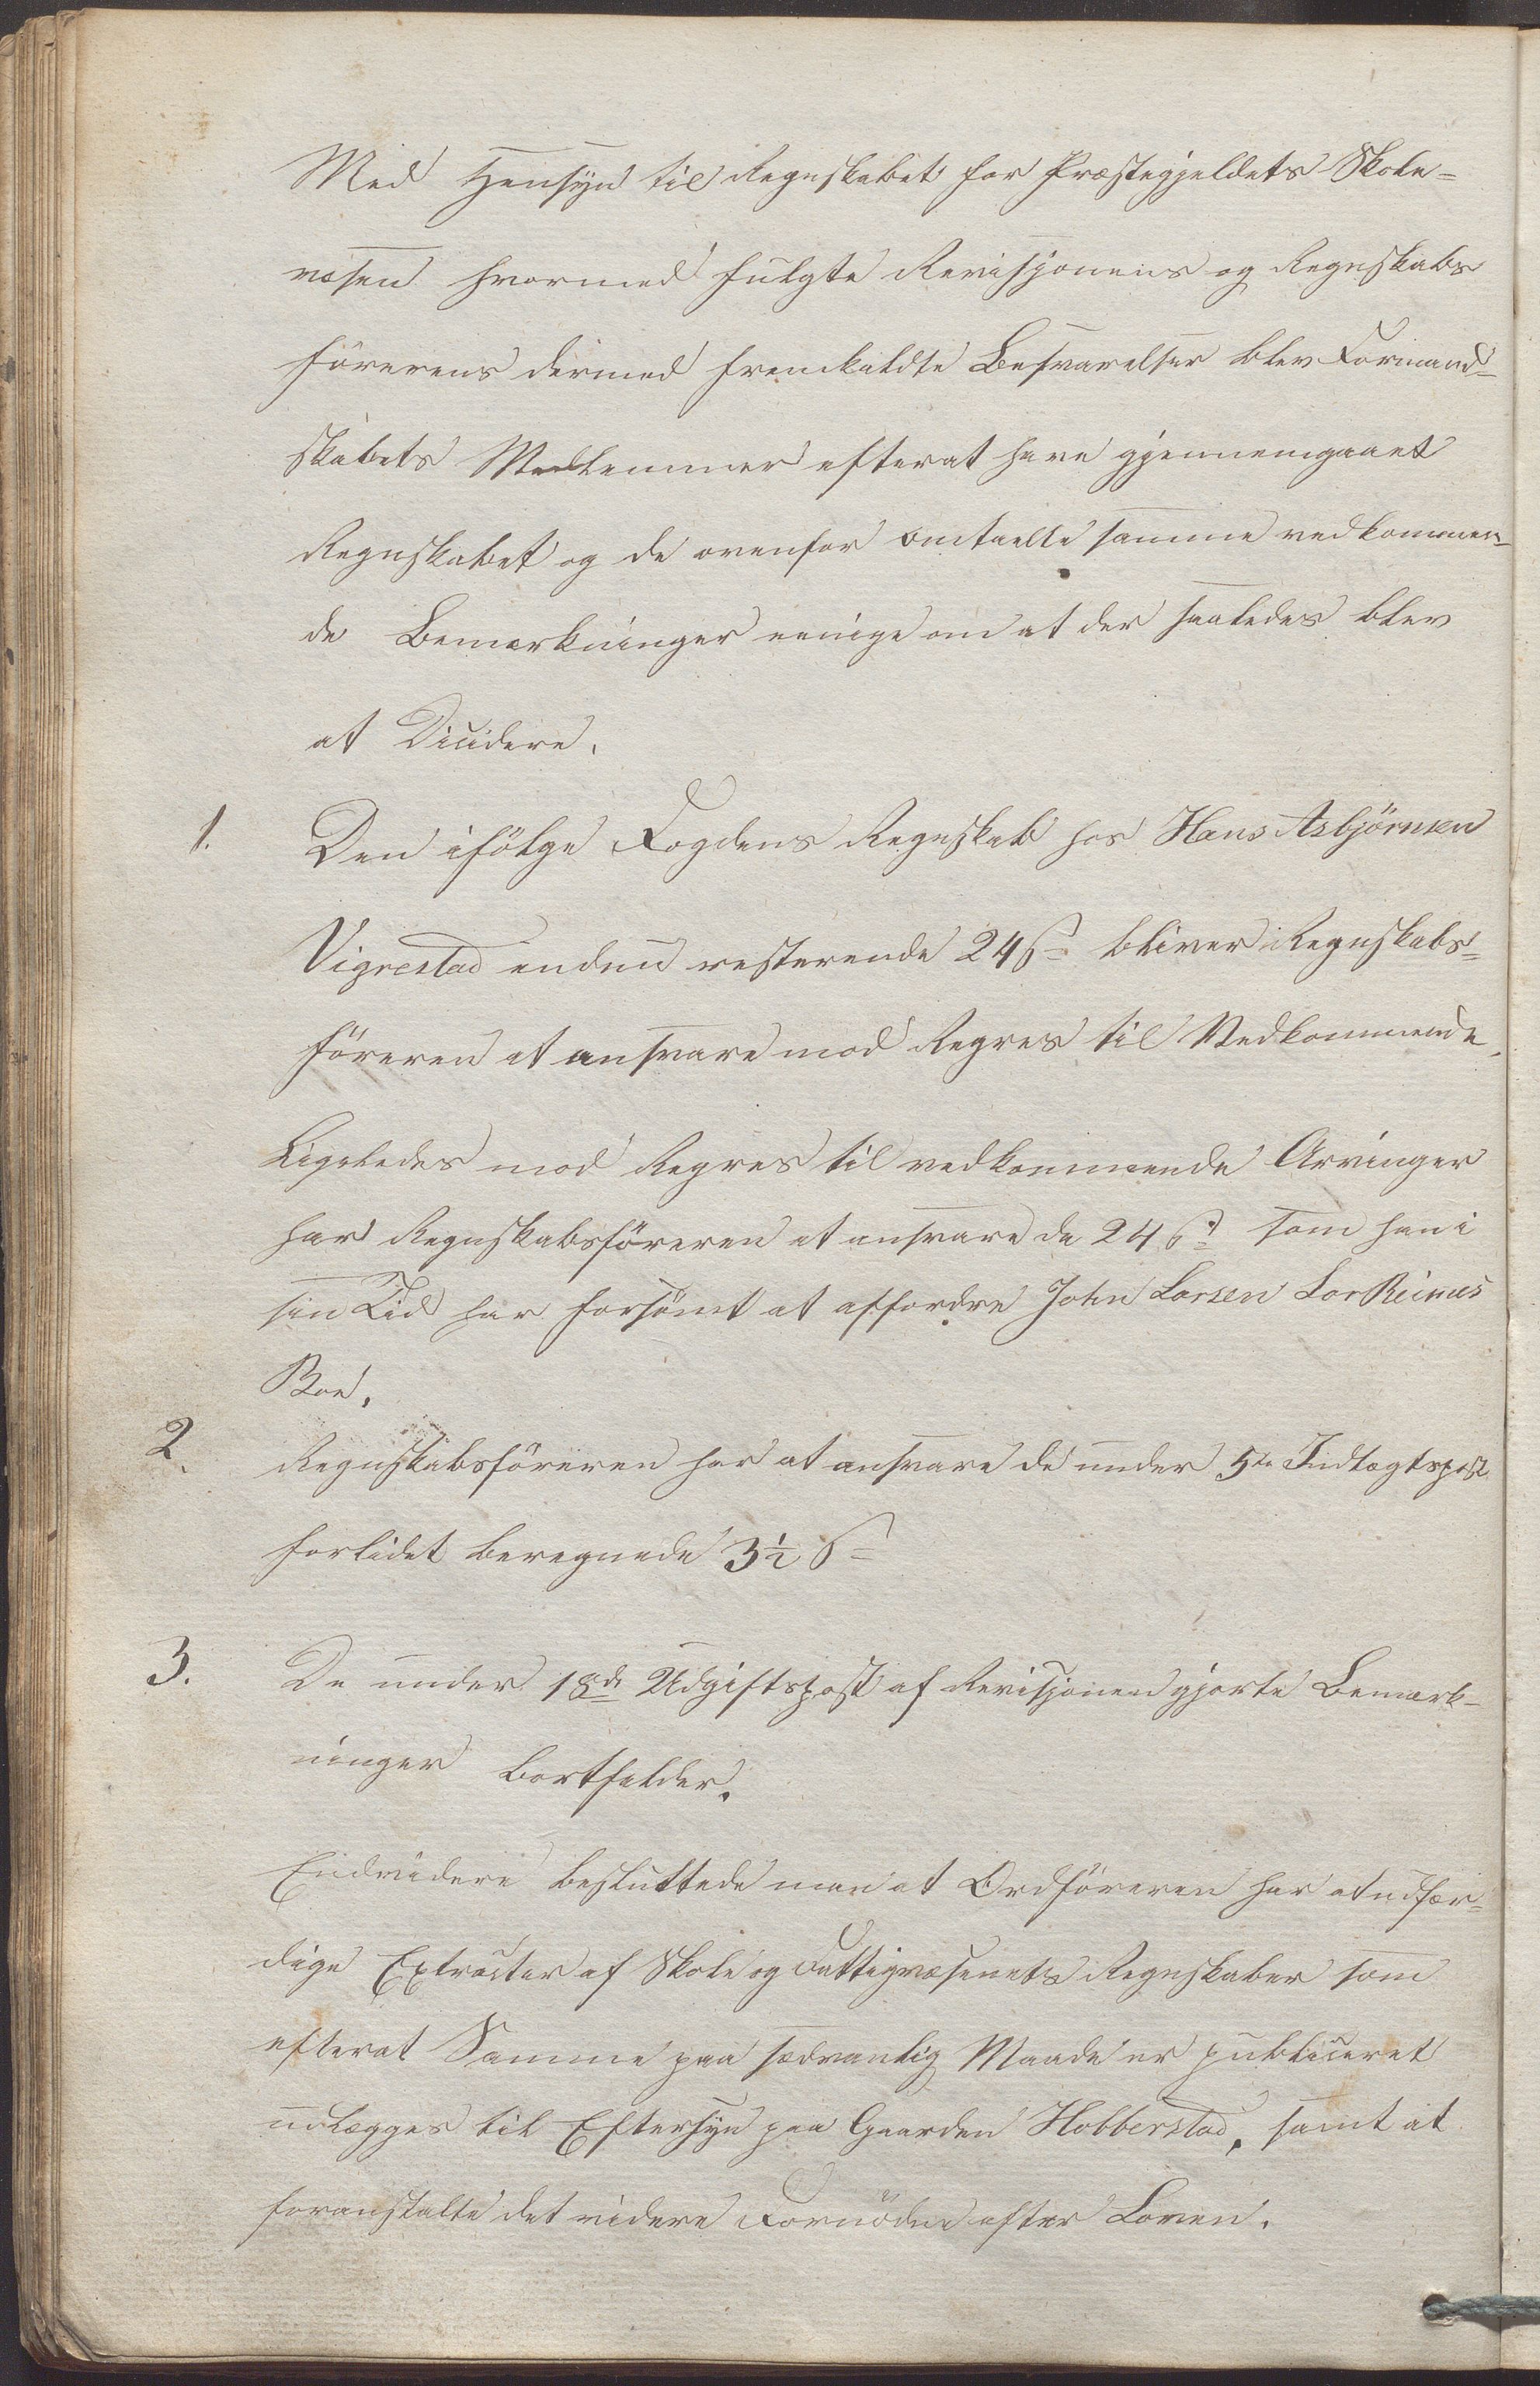 Med Hensyn til Regnskabet for Præstegjeldets Skole-
væsen hvormed fulgte Revisjonens og Regnskabs
förerens dermed fremkaldte Besvarelser blev Formand-
skabets Medlemmer efterat have gjennemgaaet
Regnskabet og de ovenfor omtalte samme vedkommen-
de Bemærkninger enige om at der saaledes blev
at Decidere.
1. Den ifölge Fogdens Regnskab hos Hans Asbjörnsen
Vigrestad endnu resterende 24 ß bliver Regnskabs-
föreren at ansvare mod Regres til Vedkommende.
Ligeledes mod Regres til vedkommende Arvinger
har Regnskabsföreren at ansvare de 24 ß som han i
sin Tid har forsömt at affordre John Larsen
Boe.
2. Regnskabsföreren har at ansvare de under 5te Indtægtspost
forlidet beregnede 3½ ß
3. De under 18de Udgiftspost af Revisjonen gjorte Bemærk-
ninger bortfalder.
Endvidere besluttede man at Ordföreren har at udfær-
dige Extracter af Skole og Fattigvæsenets Regnskaber som
efterat Samme paa sædvanlig Maade er publiceret
udlægges til Eftersyn paa Gaarden Hobberstad, samt at
foranstalte det videre Fornödne efter Loven.